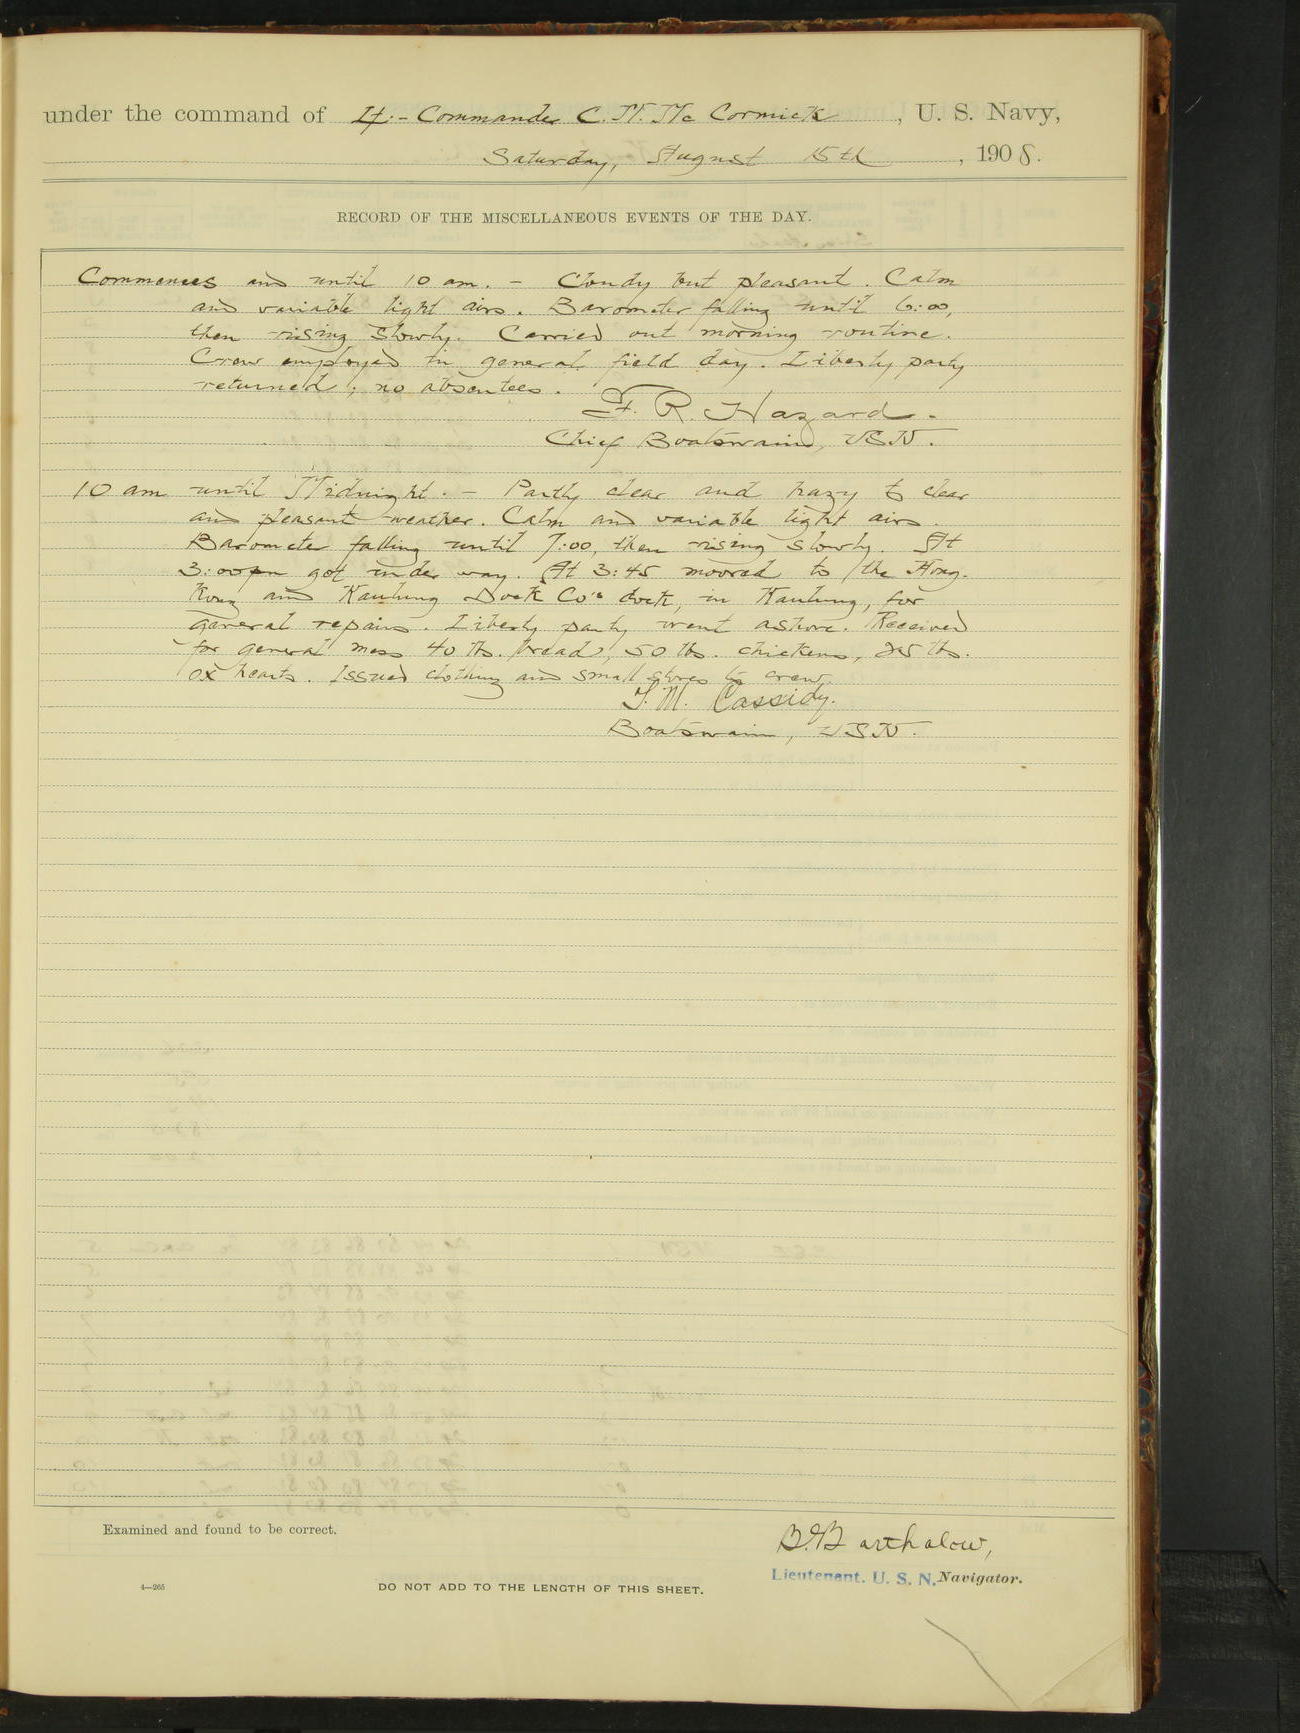 under the command of Lt.-Commander C. M. McCormick, U. S. Navy,
Saturday, August 15th, 1908.
RECORD OF THE MISCELLANEOUS EVENTS OF THE DAY.
Commences and until 10 am. - Cloudy but pleasant. Calm
and variable light airs. Barometer falling until 6:00,
then rising slowly. Carried out morning routine.
Crew employed in general field day. Liberty party
returned; no absentees.
F. R. Hazard.
Chief Boatswain, USN.
10 am until Midnight. - Partly clear and hazy to clear
and pleasant weather. Calm and variable light airs.
Barometer falling until 7:00, then rising slowly. At
3:00 pm got under way. At 3:45 moored to the Hong-
Kong and Kaulung Dock Co's dock, in Kaulung, for
general repairs. Liberty party went ashore. Received
for general mess 40 lbs. bread, 50 lbs. chickens, 25 lbs.
ox hearts. Issued clothing and small stores to crew.
T. M. Cassidy.
Boatswain, USN.
Examined and found to be correct.
B. Barthalow,
Lieutenant. U. S. N. Navigator.
4—265
DO NOT ADD TO THE LENGTH OF THIS SHEET.